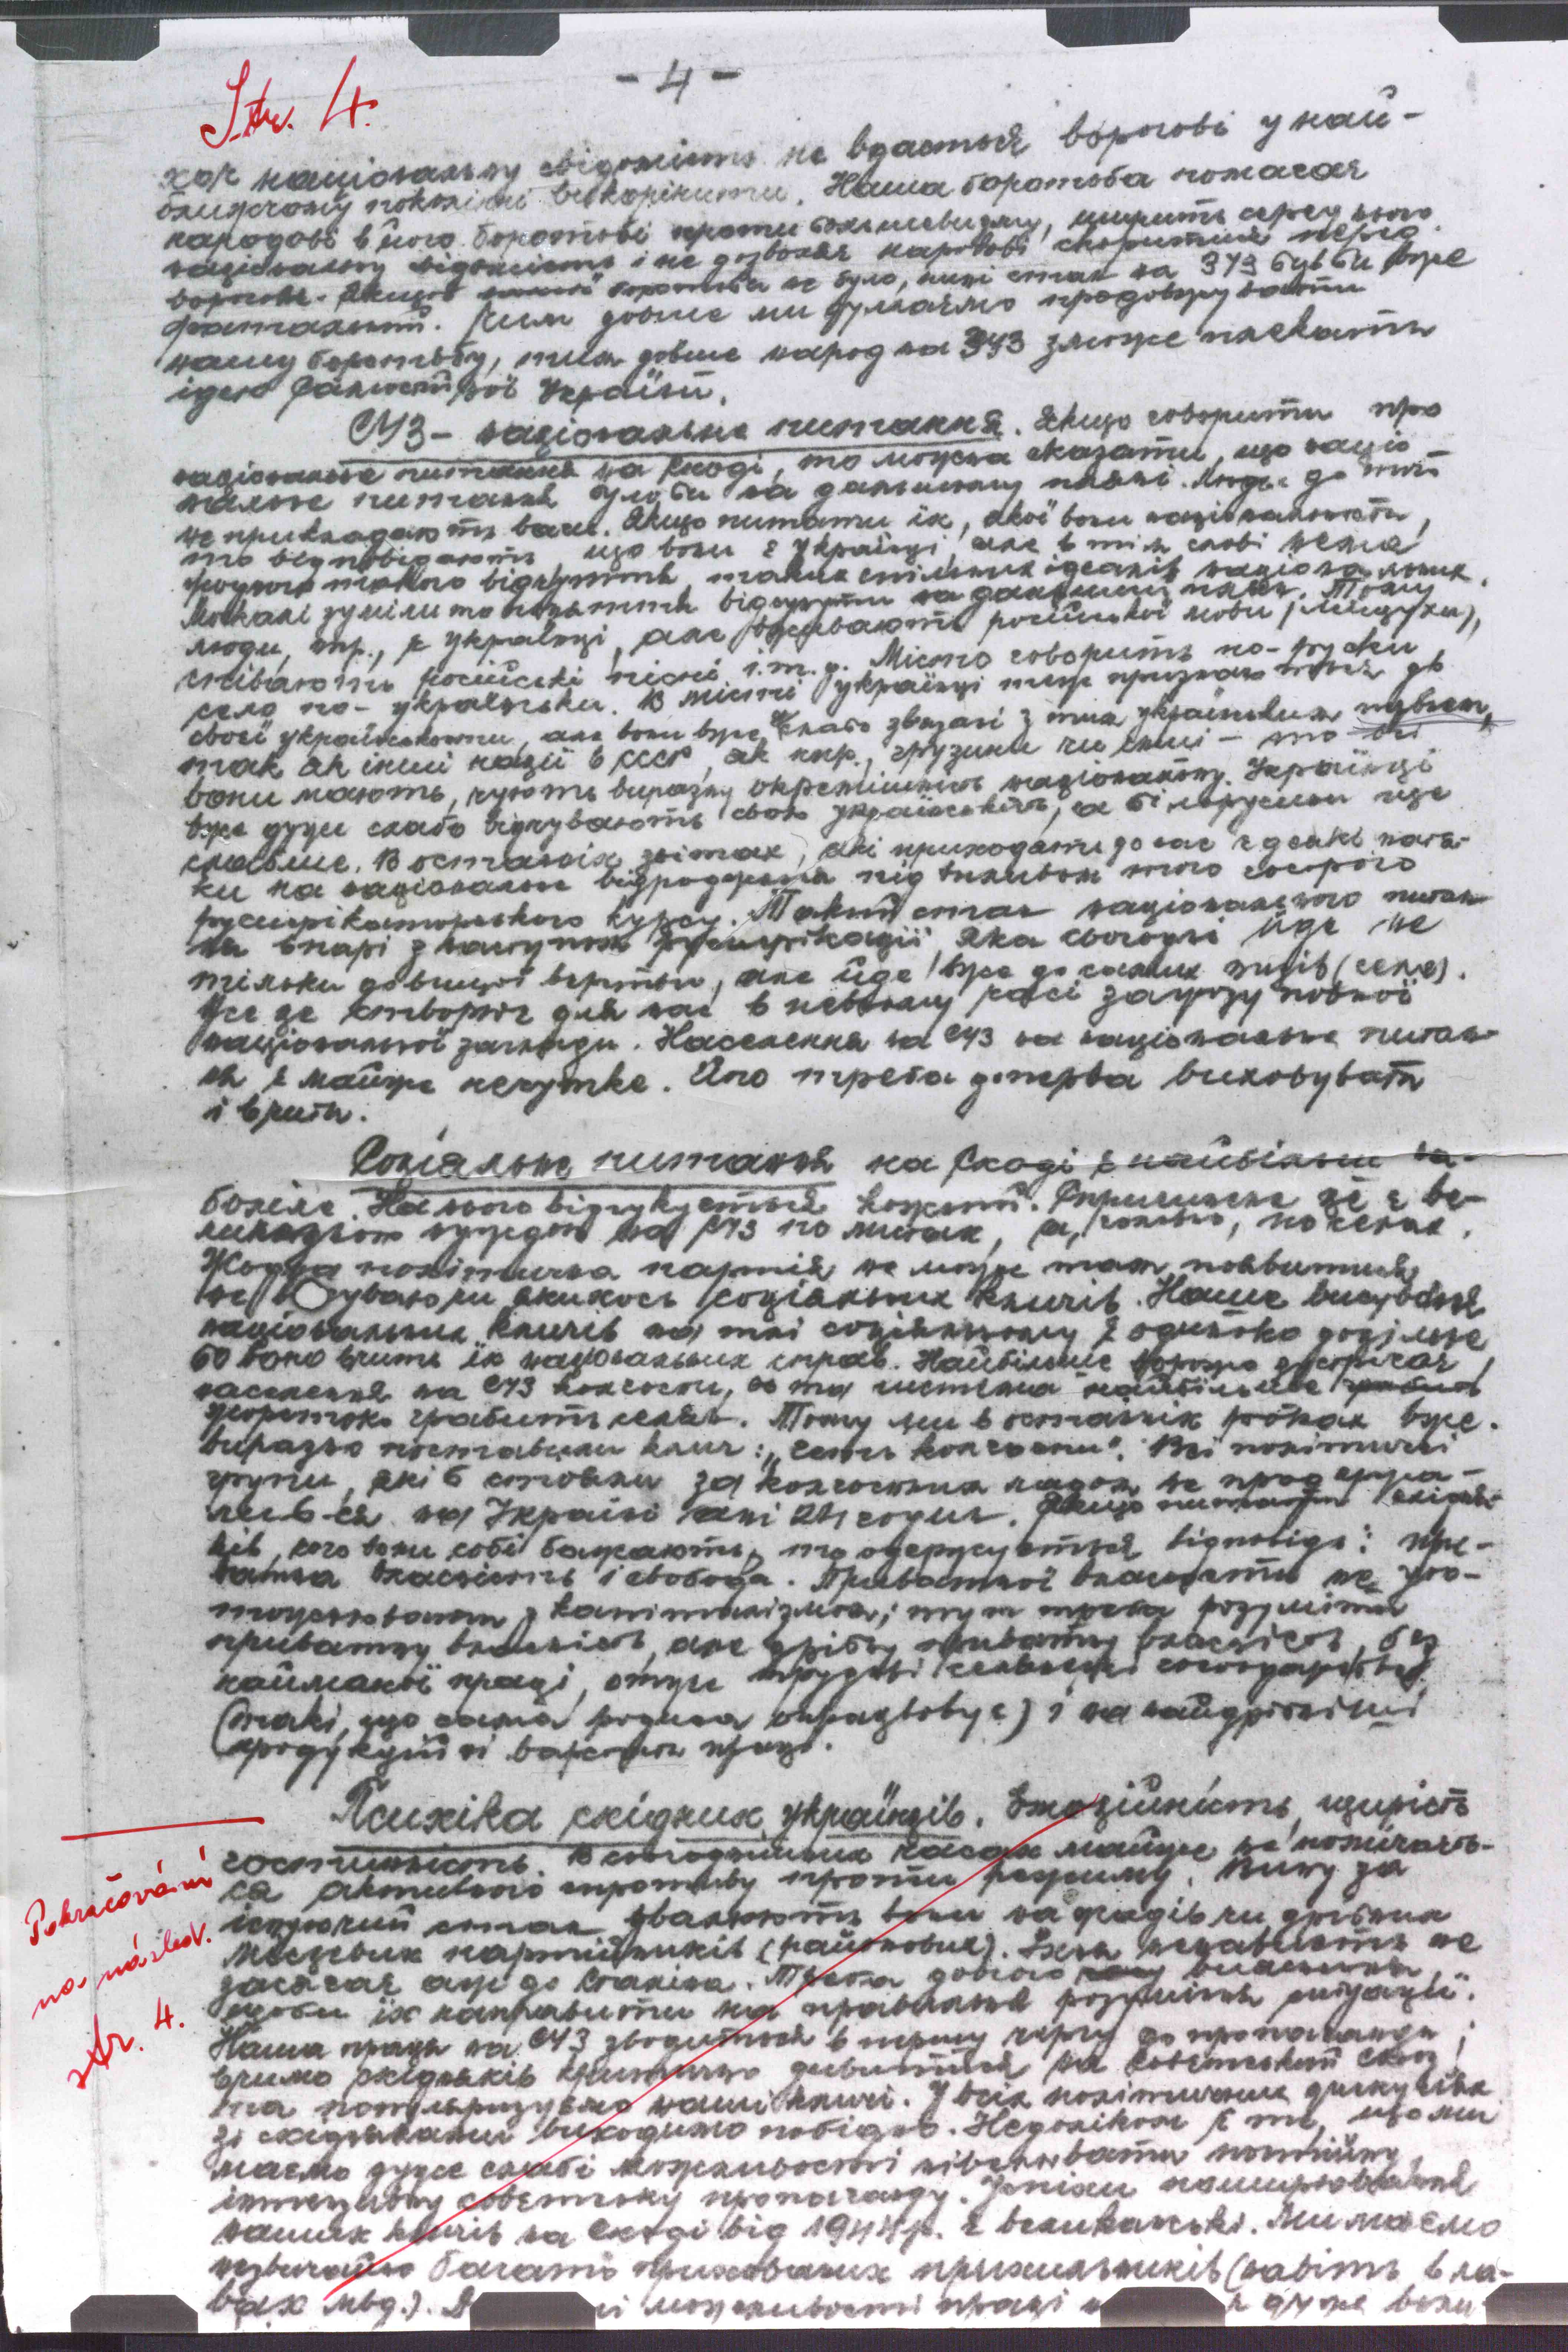 - 4 -
Str. 4.
хоч національну свідомість не вдасться ворогові у най-
ближчому поколінні викорінити. Наша боротьба помагає
народові в його боротьбі проти большевизму, ширить серед нього
національну свідомість і не дозволяє народові скоритися перед
ворогом. Якщоб нашої боротьби не було, нині стан на ЗУЗ був би вже
фатальний. Чим довше ми думаємо продовжувати
нашу боротьбу, тим довше народ на ЗУЗ зможе плекати
ідею Самостійної України.
СУЗ - національне питання. Якщо говорити про
національне питання на Сході, то можна сказати, що націо
нальне питання було би на дальшому пляні. Люде до того
не прикладають ваги. Якщо питати їх, якої вони національности,
то відповідають що вони є українці, але в тім слові нема
жодного такого відчуття, таких спільних ідеалів національних.
Москалі зуміли то поняття відсунути на дальший плян. Тому
люди, нпр., є українці, але вживають російської мови (між'),
співають російські пісні і.т.д. Місто говорить по-руски,
село по-українськи. В місті українці теж признаються до
своєї українськости, але вони вже слабо звязані з тим українським
так як інші нації в СССР, як нпр., грузини чи інші - то всі
вони мають, чують виразну окремішність національну. Українці
вже дуже слабо відчувають свою українськість, а білорусини ще
слабше. В останніх звітах, які приходять до нас є деякі натя-
ки на національне відродження під впливом того гострого
русифікаторського курсу. Такий стан національного питан
ня впарі з наступом русифікації яка сьогодні йде не
тільки до вищої верстви, але йде вже до самих низів (село).
Усе це створює для нас в недовгому часі загрозу повної
національної загляди. Населення на СУЗ на національне питан-
ня є майже нечутке. Його треба доперва виховувати
і вчити.
Соціяльне питання на Сході є найбільш на-
боліле. На нього відгукується кожний. Спричинене це є ве-
ликою нуждою на СУЗ по містах, а, головно, по селах.
Жодна політична партія не може там появитися
не висуваючи якихось соціяльних кличів. Наше висування
національних кличів на тлі соціяльному є одиноко доцільне
бо воно вчить їх національних справ. Найбільше
населення на СУЗ колгоспи, бо та система найбільше
жорстоко грабить селян. Тому ми в останніх роках вже
виразно поставили клич: „Геть колгоспи". Всі політичні
групи, які б стояли за колгоспним ладом не продержа-
либ-ся на Україні ані 24 годин. Якщо питати східня-
ків, чого вони собі бажають, то одержується відповідь: при-
ватна власність і свобода. Приватної власности не ото-
тожнювати з капіталізмом; тут треба розуміти
приватну власність, але дрібну приватну власність, без
найманої праці, отже трудові селянські господарства
(такі, що сама родина опрацьовує) і на найдрібніші
продукційні варстати праці.
Психіка східних українців. Емоційність, щирість
гостинність. В сьогоднішних часах майже не помічаєть-
ся активного спротиву проти режиму. Вину за
існуючий стан звалюють вони на жидів чи дрібних
місцевих партійників (районових). Їхня ненависть не
засягає аж до Сталіна. Треба довгого вияснення
щоби їх направити на правильне розуміння ситуації.
Наша праця на СУЗ зводиться в першу чергу до пропаганди;
вчимо східняків критично дивитися на совєтський
та популяризуємо наші кличі. У всіх політичних дискусіях
зі східняками виходимо побідно. Недоліком є те, що ми
маємо дуже слабі можливості нівелювати постійну
інтензивну совєтську пропаганду. Успіхи поширювання
наших кличів на Сході від 1944р. є великанські. Ми маємо
незвичайно багато прихованих прихильників (навіть в ла-
вах мвд.). і можливости праці дуже вели-
Pokračování
na násled.
str. 4.